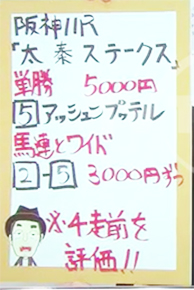 阪神11R
「太秦ステークス」
単勝 5000円
5 アッシェンプッテル
馬連とワイド
2-5 3000円ずつ
※4走前を
評価!!